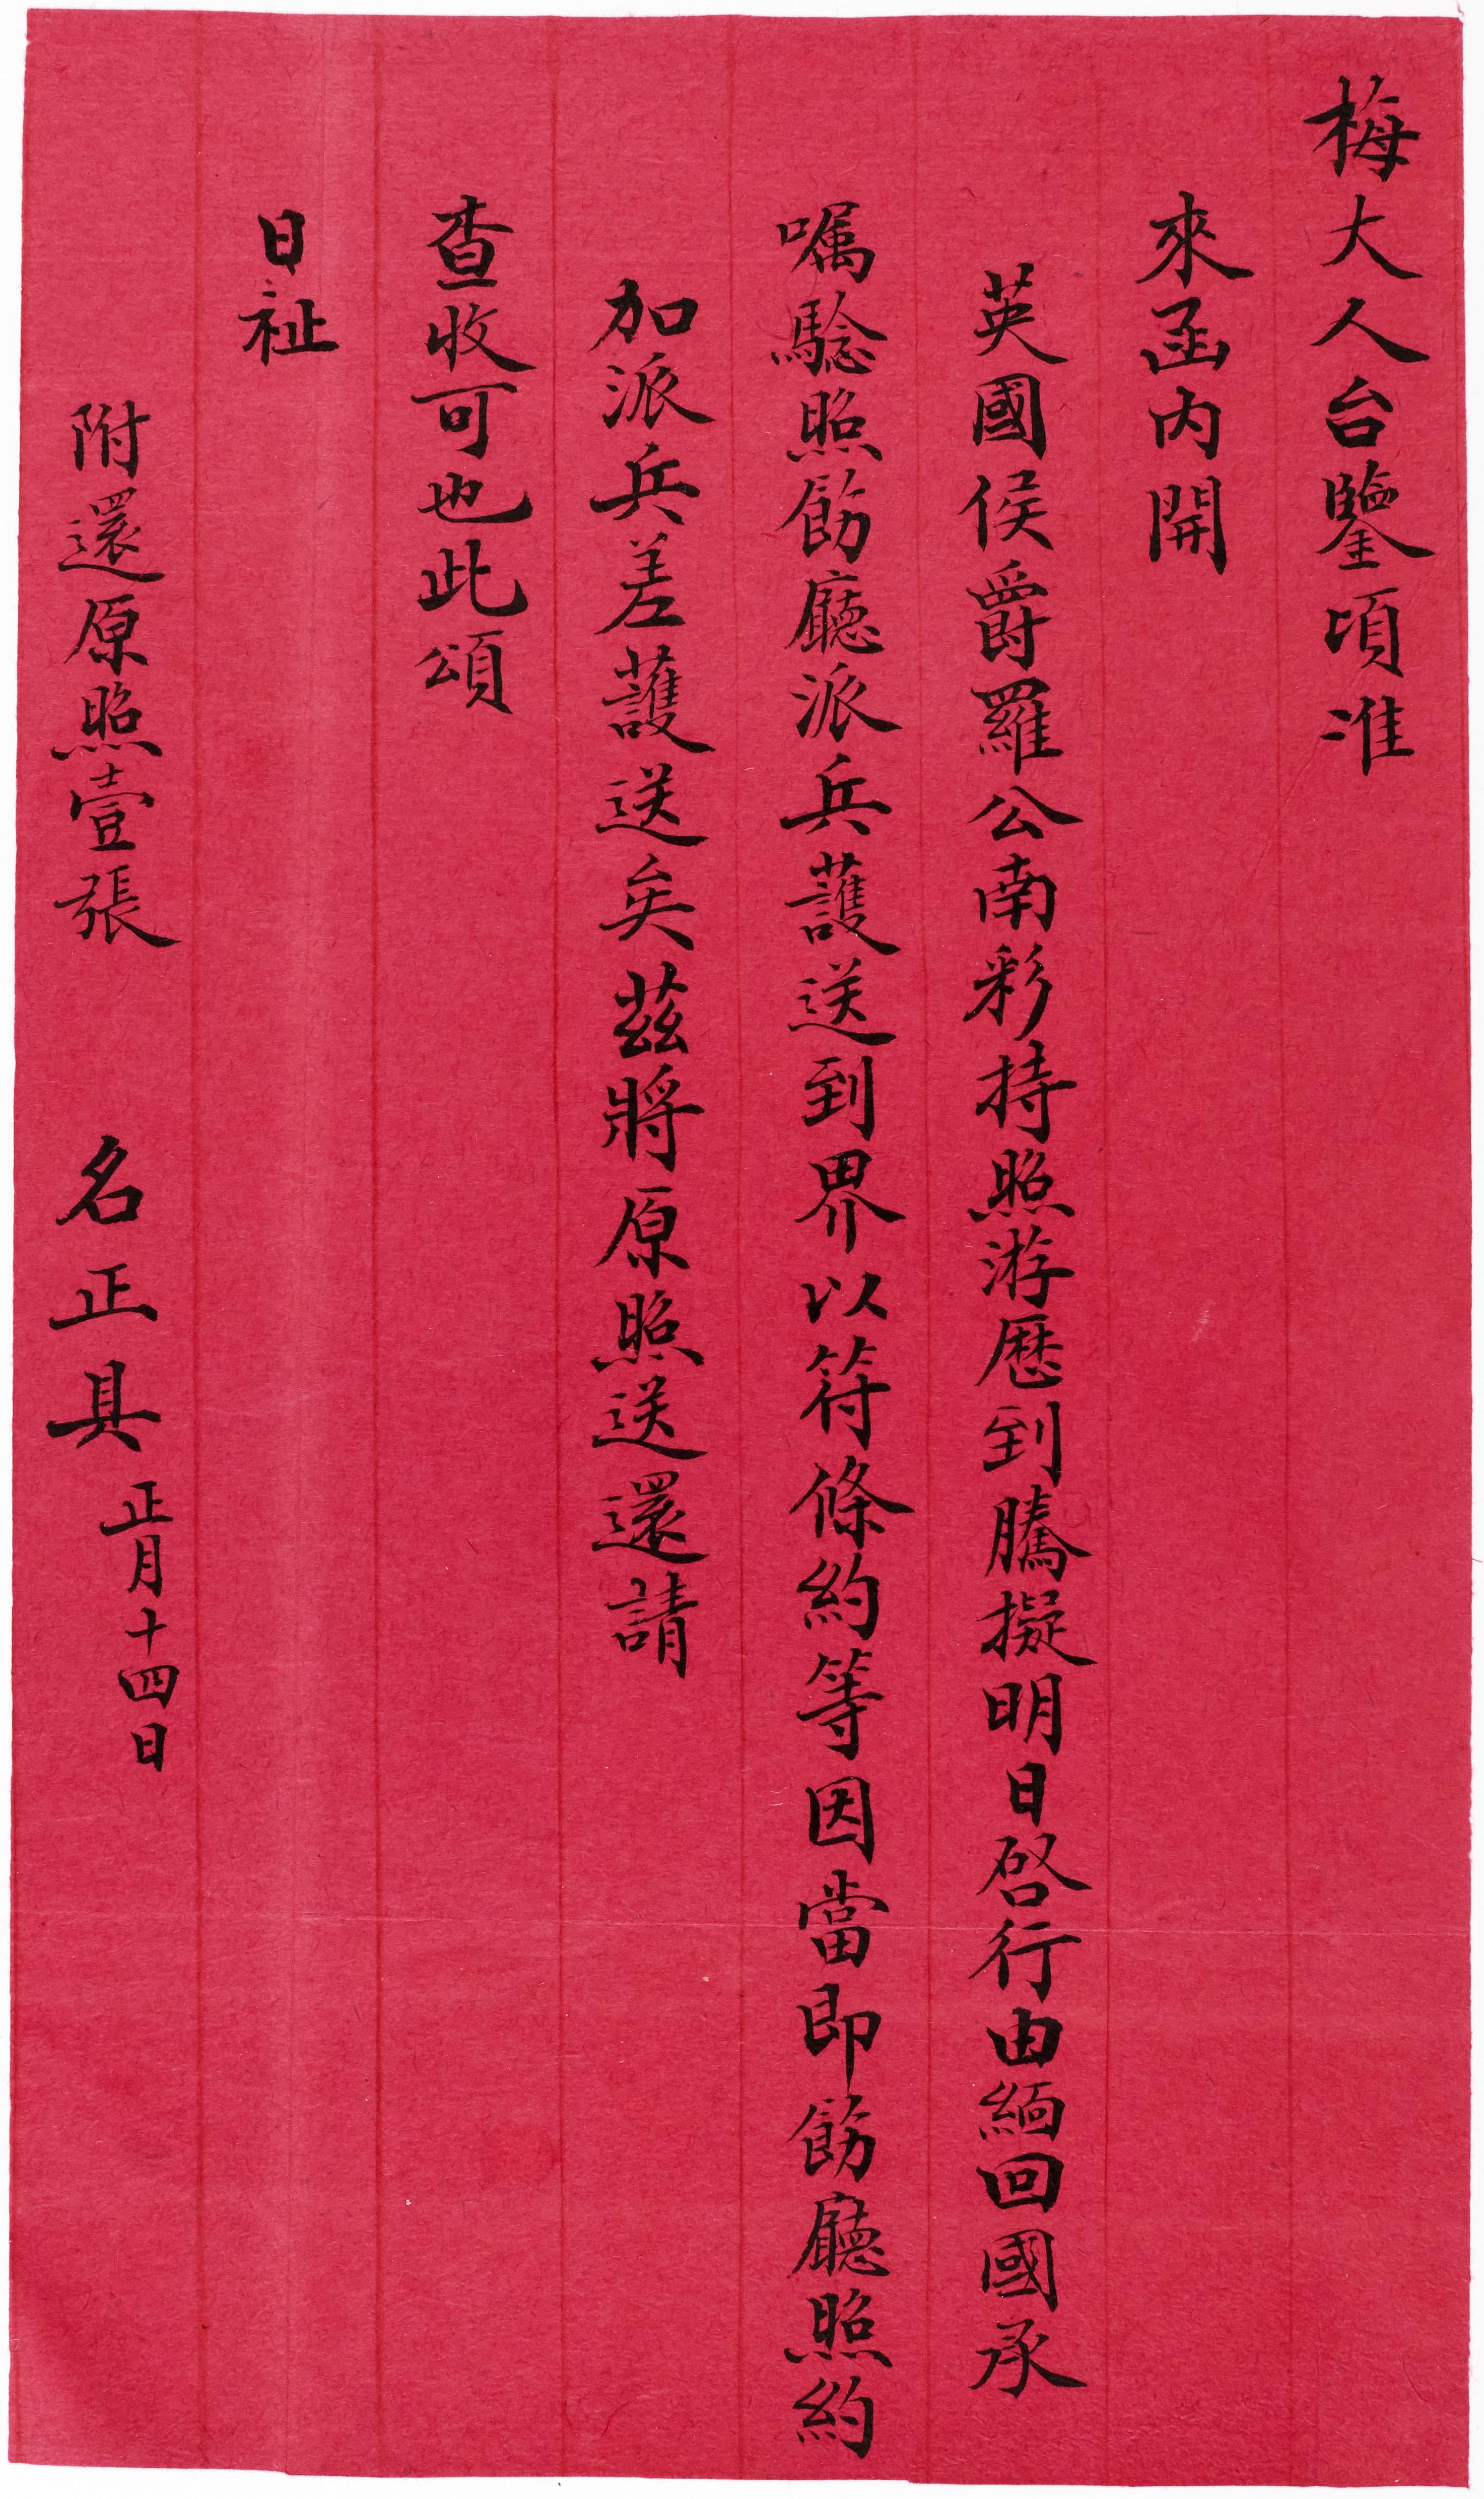 梅大人台鑒頃准
來函內開
英國侯爵羅公南彩持照游歷到騰擬明日啓行由緬回國承
嘱騐照飭廳派兵護送到界以符條約等因當即飭廳照約
加派兵差護送矣茲將原照送還請
查收可也此頌
日祉
附還原照壹張 名正具 正月十四日